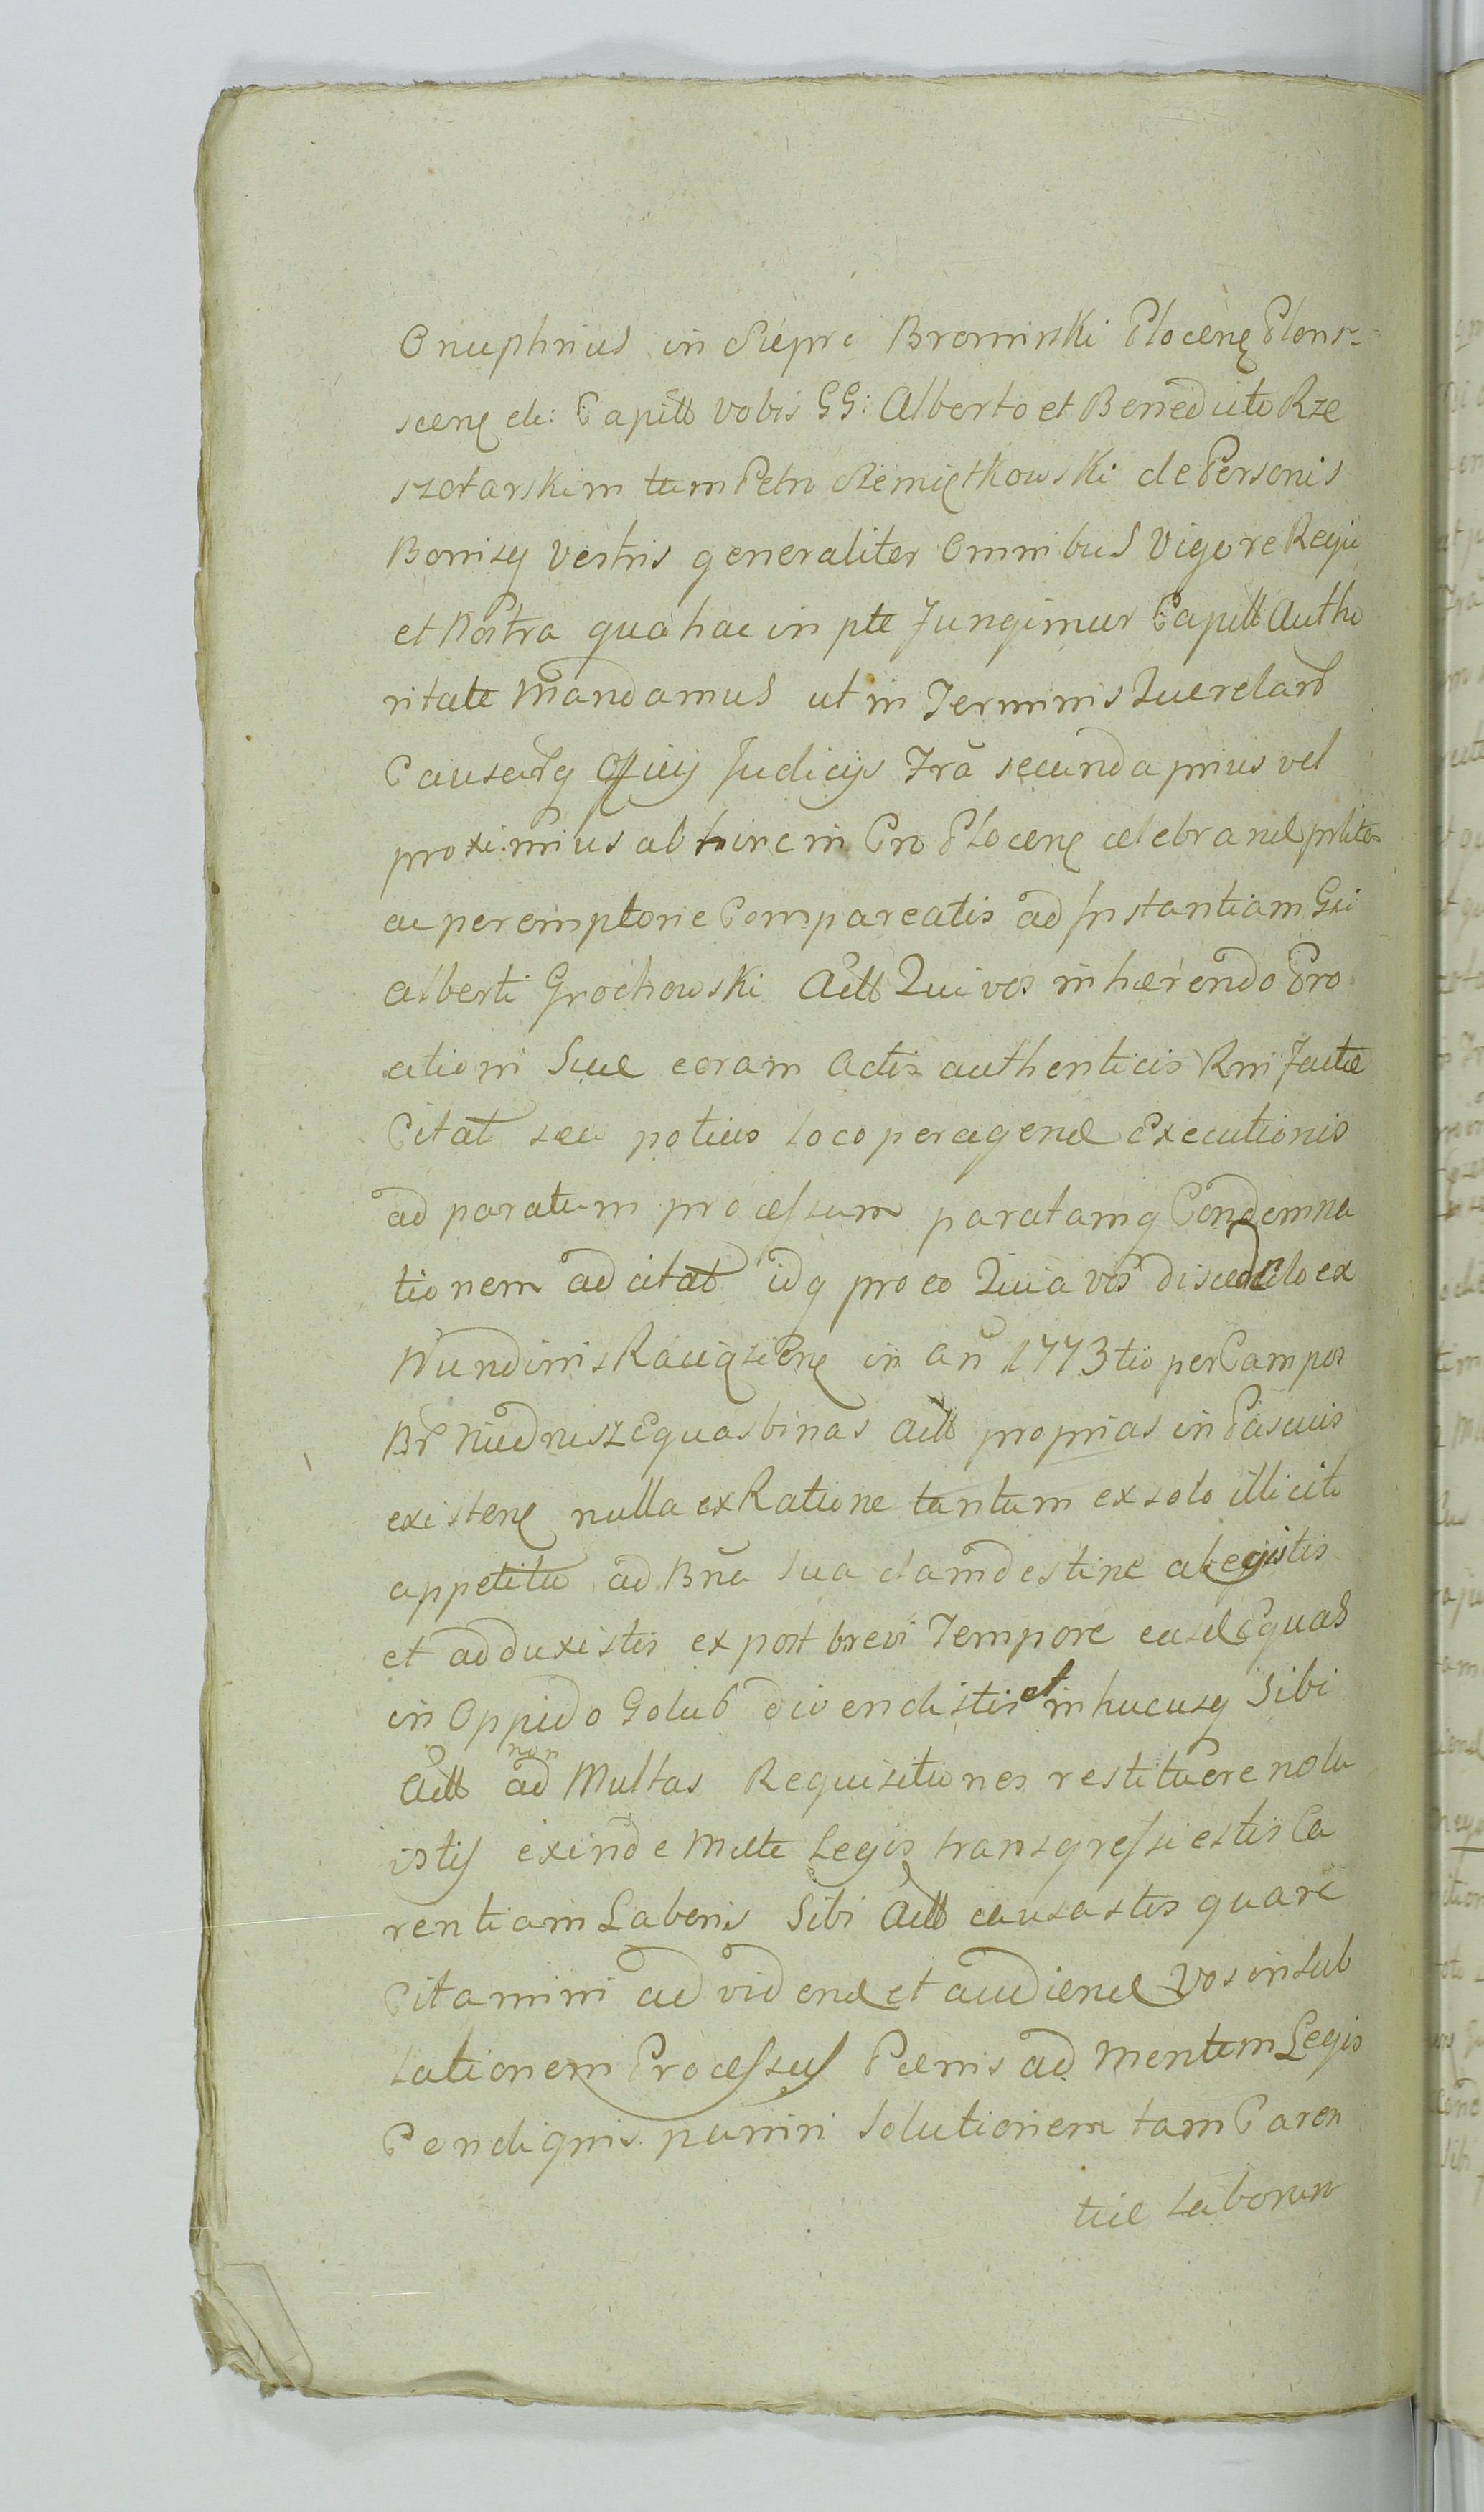 Onuphrius in Sieprc Bromirski Plocenę Plons-
scenę etc: Capitt vobis GG: Alberto et Benedicto Rze
szotarskim tum Petro Ziemiętkowski de Personis
Bonisq vestris generaliter omnibus Vigore Regio
et Nostra qua hac in pte Jungimur Capitt Autho
ritate Mandamus ut in Terminis Querelard
Causardq Officij Judicijs Tra secunda prius vel
proximius ab hinc in Cro Plocenę celebrand prliter
ac peremptorie Compareatis ad Instantiam Gsi
Alberti Grochowski Actt Qui vos inhaerendo Pro
ationi Suae coram Actis authenticis Rni factae
Citat seu potius loco peragendae Executionis
ad paratum processum paratamq Condemna
tionem adcitat idq pro eo Quia vos discedendo ex
Nundinis Raciązienę in An 1773tio per Campos
Br Niedrusz Equas binas Actt proprias in Pascuis
existenę nulla ex Ratione tantum ex solo illicito
appetitu ad Bna sua clamdestine abegistis
et adduxistis ex post brevi Tempore easd Equas
in Oppido Golub divendistis et in hucusq Sibi
Actt non ad Multas Requisitiones restituere nolu
istis exinde Multe Legis transgressi estis Ca
rentiam Laboris Sibi Actt causastis quare
Citamini ad vidend et audiend Vos in sub
lationem Processus Paenis ad Mentem Legis
Condignis puniri Solutionem tam Caren
tiae Laborum